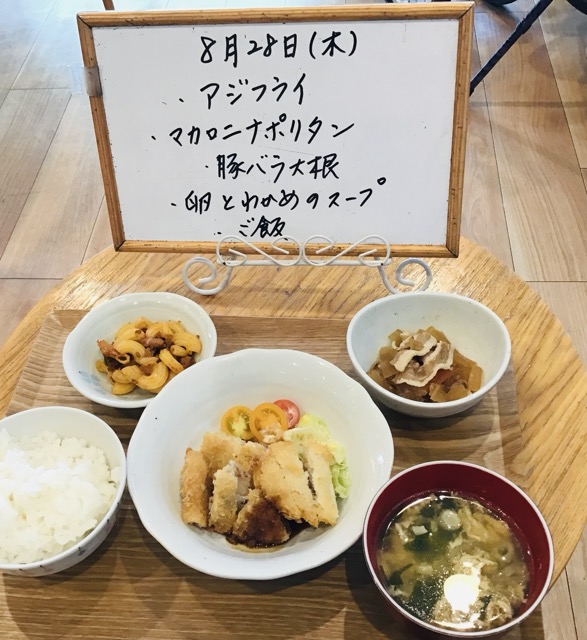 8月28日(木)
・アジフライ
・マカロニナポリタン
・豚バラ大根
・卵とわかめのスープ
・ご飯